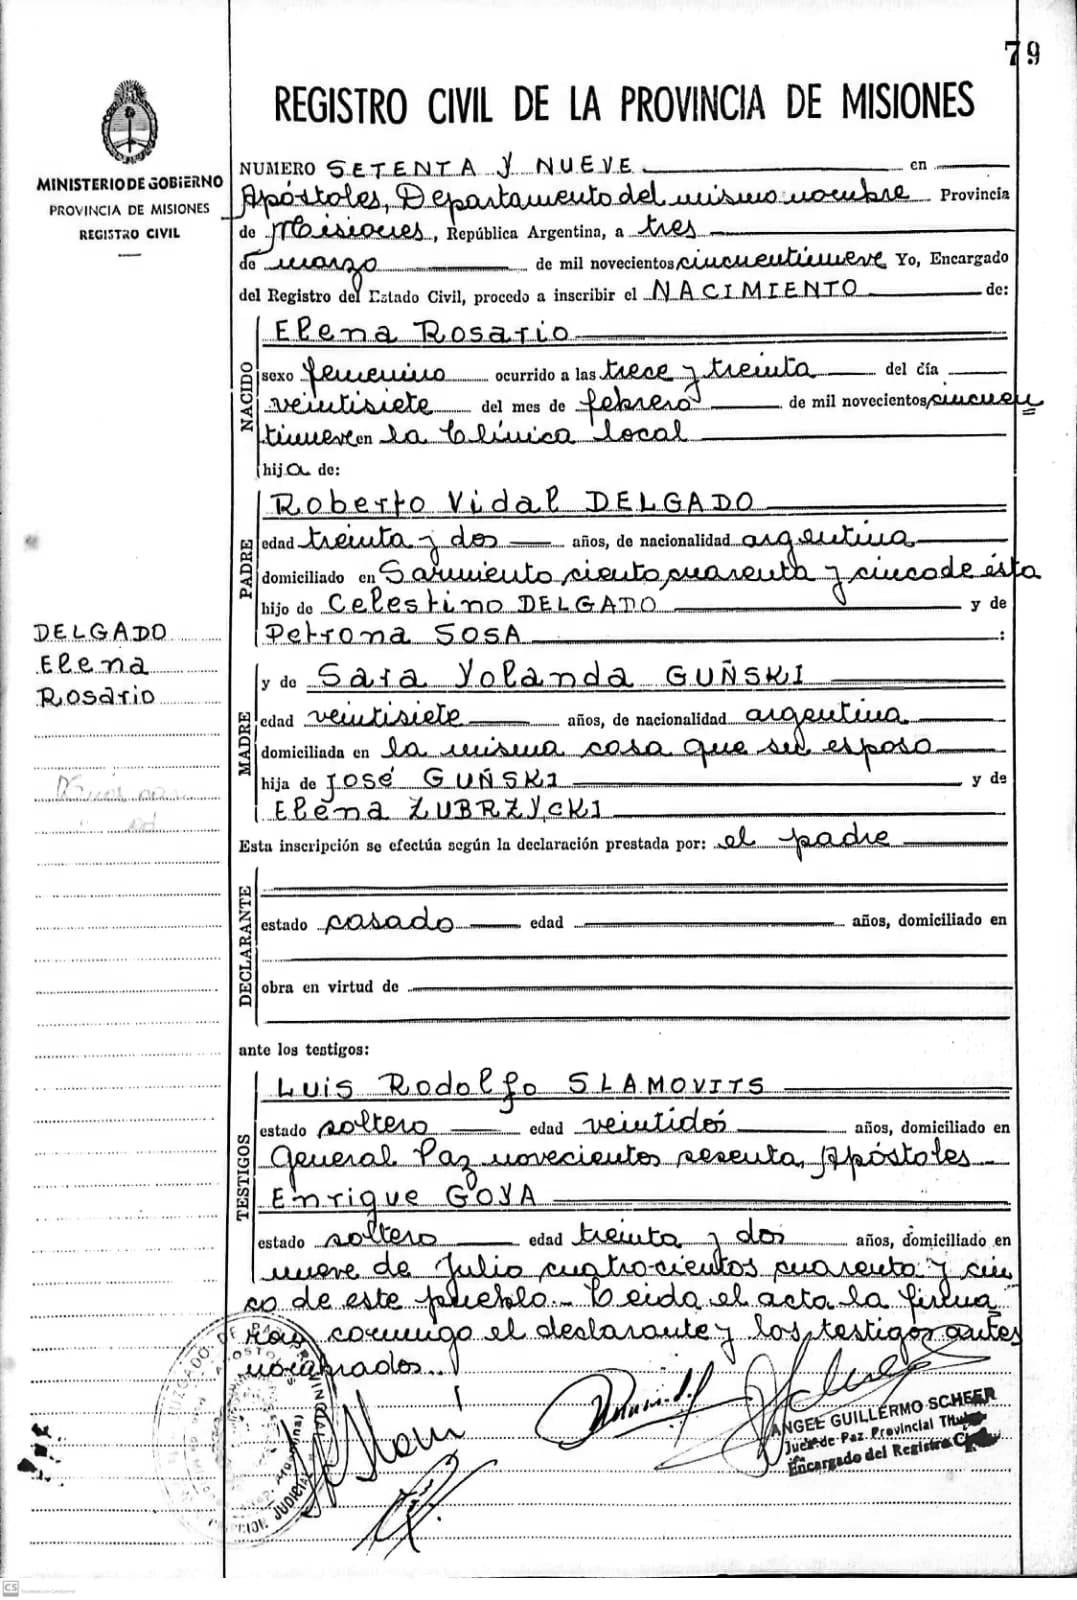 79
REGISTRO CIVIL DE LA PROVINCIA DE MISIONES
MINISTERIO DE GOBIERNO
PROVINCIA DE MISIONES
REGISTRO CIVIL
NUMERO SETENTA Y NUEVE en
Apóstoles, Departamento del mismo nombre Provincia
de Misiones, República Argentina, a tres
de marzo de mil novecientos cincuentinueve Yo, Encargado
del Registro del Estado Civil, procedo a inscribir el NACIMIENTO de:
NACIDO
Elena Rosario
sexo femenino ocurrido a las trece y treinta del día
veintisiete del mes de febrero de mil novecientos cincuen
tinueve en la Clínica local
hija de:
PADRE
Roberto Vidal DELGADO
edad treinta y dos años, de nacionalidad argentina
domiciliado en Sarmiento ciento cuarenta y cinco de ésta
hijo de Celestino DELGADO y de
Petrona SOSA :
DELGADO
Elena
Rosario
MADRE
y de Sara Yolanda GUÑSKI
edad veintisiete años, de nacionalidad argentina
domiciliada en la misma casa que su esposo
hija de José GUÑSKI y de
Elena ZUBRZYCKI
Esta inscripción se efectúa según la declaración prestada por: el padre
DECLARANTE
estado casado edad años, domiciliado en
obra en virtud de
ante los testigos:
TESTIGOS
Luis Rodolfo SLAMOVITS
estado soltero edad veintidós años, domiciliado en
General Paz novecientos sesenta, Apóstoles
Enrique GOYA
estado soltero edad treinta y dos años, domiciliado en
nueve de Julio cuatrocientos cuarenta y cin
co de este pueblo.- Leida el acta la firma
ron conmigo el declarante y los testigos antes
nombrados.
ANGEL GUILLERMO SCHEER
Juez de Paz Provincial Titular
Encargado del Registro
JUDICIAL
CS